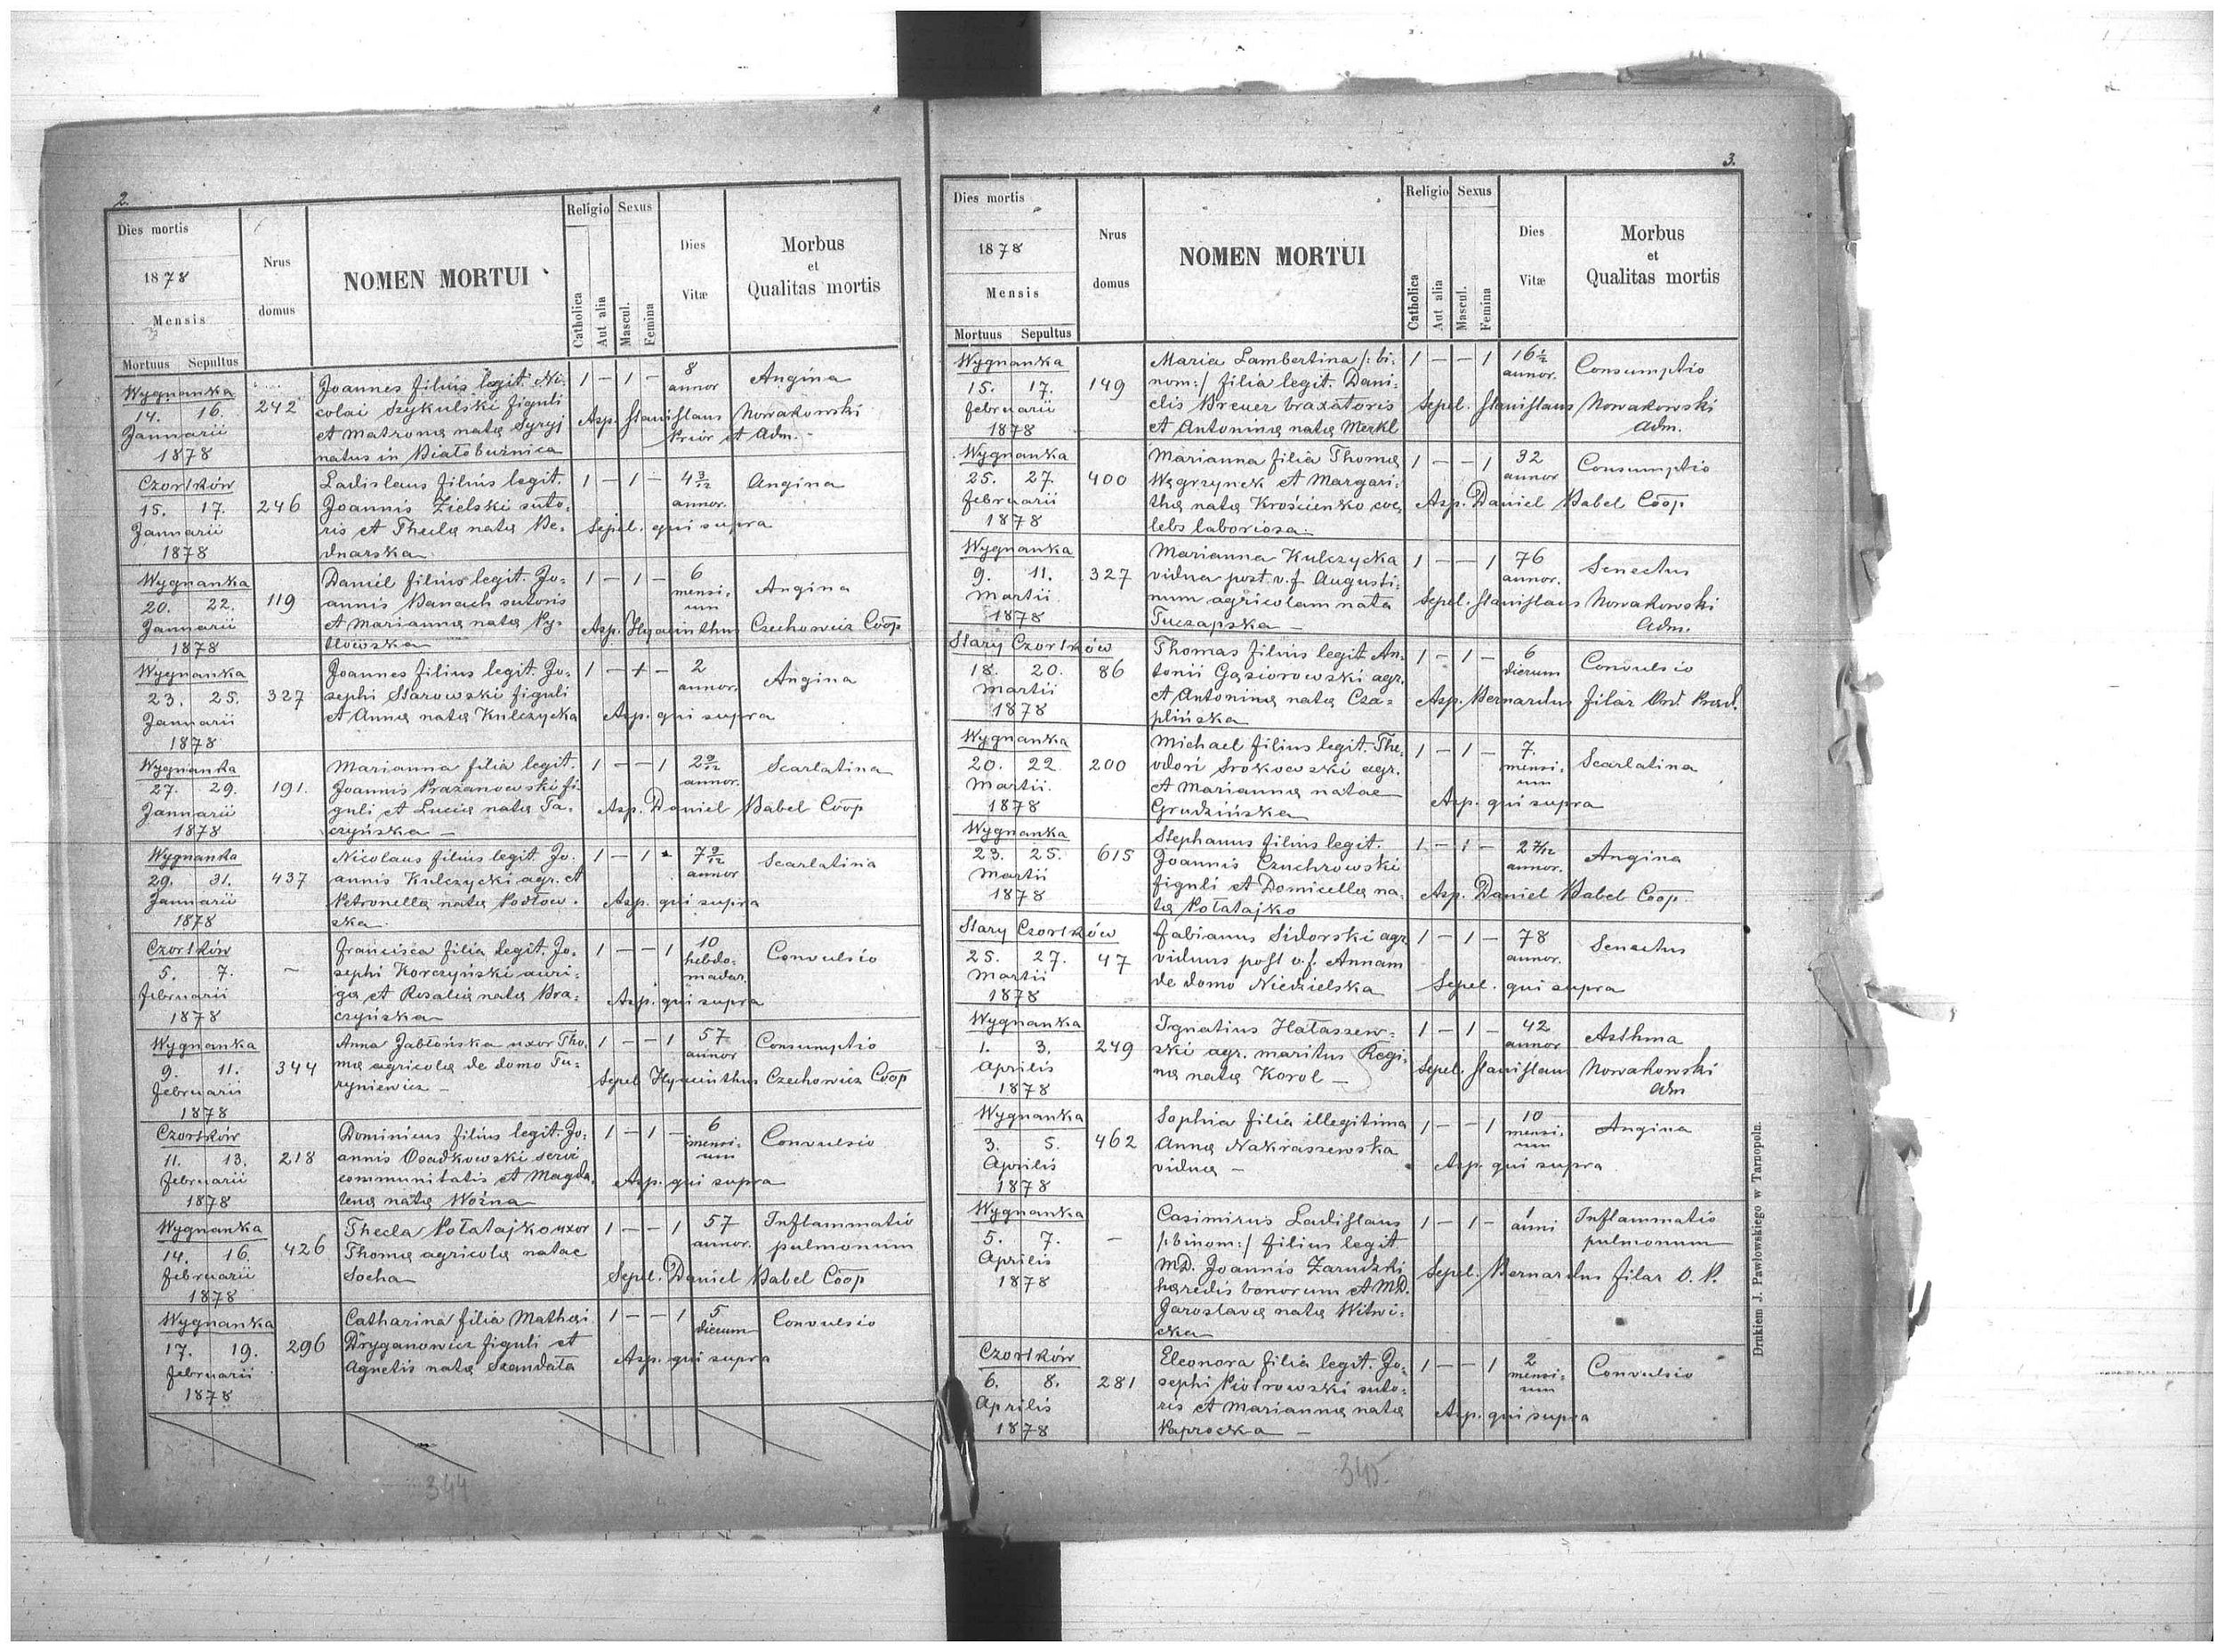 2.
Dies mortis
1878
Mensis
Mortuus Sepultus
Nrus domus
NOMEN MORTUI
Religio Sexus
Catholica
Aut alia
Mascul.
Femina
Dies Vitæ
Morbus
et
Qualitas mortis
Wygnanka
14. 16.
Januarii
1878
242
Joannes filius legit. Ni-
colai Szykulski figuli
et Matronæ natæ Syryj
natus in Białobużnica
1 — 1 —
8
annor
Angina
Asp. Stanislaus Nowakowski
Prior et Adm.
Czortków
15. 17.
Januarii
1878
246
Ladislaus filius legit.
Joannis Zielski suto-
ris et Theclæ natæ Be-
dnarska
1 — 1 —
4 3/12
annor.
Angina
Sepel. qui supra
Wygnanka
20. 22.
Januarii
1878
119
Daniel filius legit. Jo-
annis Banach sutoris
et Mariannæ natæ Py-
1 — 1 —
6
mensi-
um
Angina
Asp. Hyacinthus Czechowicz Coop
Wygnanka
23. 25.
Januarii
1878
327
Joannes filius legit. Jo-
sephi Starowski figuli
et Annæ natæ Kulczycka
1 — 1 —
2
annor.
Angina
Asp. qui supra
Wygnanka
27. 29.
Januarii
1878
191.
Marianna filia legit.
Joannis Prażanowski fi-
guli et Luciæ natæ Ta-
czyńska —
1 — — 1
2 9/12
annor.
Scarlatina
Asp. Daniel Babel Coop
Wygnanka
29. 31.
Januarii
1878
437
Nicolaus filius legit. Jo-
annis Kulczycki agr. et
Petronellæ natæ Podłow-
ska
1 — 1 -
7 9/12
annor
Scarlatina
Asp. qui supra
Czortków
5. 7.
Februarii
1878
—
Francisca filia legit. Jo-
sephi Korczyński auri-
gæ et Rosaliæ natæ Bra-
czyńska
1 — — 1
10
hebdo-
madar.
Convulsio
Asp. qui supra
Wygnanka
9. 11.
Februarii
1878
344
Anna Jabłońska uxor Tho-
mæ agricolæ de domo Tu-
ryniewicz —
1 — — 1
57
annor
Consumptio
Sepel Hyacinthus Czechowicz Coop
Czortków
11. 13.
Februarii
1878
218
Dominicus filius legit. Jo-
annis Osadkowski servi
communitatis et Magda-
lenæ natæ Woźna
1 — 1 —
6
mensi-
um
Convulsio
Asp. qui supra
Wygnanka
14. 16.
Februarii
1878
426
Thecla Połatajko uxor
Thomæ agricolæ natae
Socha
1 — — 1
57
annor.
Inflammatio
pulmonum
Sepel. Daniel Babel Coop
Wygnanka
17. 19.
Februarii
1878
296
Catharina filia Mathæi
Dryganowicz figuli et
Agnetis natæ Szandała
1 — — 1
5
dierum
Convulsio
Asp. qui supra
344
3.
Dies mortis
1878
Mensis
Mortuus Sepultus
Nrus domus
NOMEN MORTUI
Religio Sexus
Catholica
Aut alia
Mascul.
Femina
Dies Vitæ
Morbus
et
Qualitas mortis
Wygnanka
15. 17.
Februarii
1878
149
Maria Lambertina /: bi-
nom:/ filia legit. Dani-
elis Breuer braxatoris
et Antoninæ natæ Merkl
1 — — 1
16 1/2
annor.
Consumptio
Sepel. Stanislaus Nowakowski
Adm.
Wygnanka
25. 27.
Februarii
1878
400
Marianna filia Thomæ
Węgrzynek et Margari-
thæ natæ Krościenko cœ-
lebs laboriosa.
1 — — 1
32
annor
Consumptio
Asp. Daniel Babel Coop
Wygnanka
9. 11.
Martii
1878
327
Marianna Kulczycka
vidua post v.f. Augusti-
num agricolam nata
Tuczapska —
1 — — 1
76
annor.
Senectus
Sepel. Stanislaus Nowakowski
Adm.
Stary Czortków
18. 20.
Martii
1878
86
Thomas filius legit An-
tonii Gąsiorowski agr.
et Antoninæ natæ Cza-
plińska
1 — 1 —
6
dierum
Convulsio
Asp. Bernardus Filar Ord. Præd.
Wygnanka
20. 22
Martii.
1878
200
Michael filius legit. The-
odori Srokowski agr.
et Mariannæ natae
Grudzińska
1 — 1 —
7.
mensi-
um
Scarlatina
Asp. qui supra
Wygnanka
23. 25.
Martii
1878
615
Stephanus filius legit.
Joannis Czuchrowski
figuli et Domicellæ na-
tæ Połatajko
1 — 1 —
2 7/12
annor.
Angina
Asp. Daniel Babel Coop.
Stary Czortków
25. 27.
Martii
1878
47
Fabianus Sidorski agr
viduus post v.f. Annam
de domo Niedzielska
1 — 1 —
78
annor.
Senectus
Sepel. qui supra
Wygnanka
1. 3.
Aprilis
1878
249
Ignatius Hałaszew-
ski agr. maritus Regi-
næ natæ Korol —
1 — 1 —
42
annor
Asthma
Sepel. Stanislaus Nowakowski
Adm
Wygnanka
3. 5.
Aprilis
1878
462
Sophia filia illegitima
Annæ Nakraszewska
viduæ —
1 — — 1
10
mensi-
um
Angina
Asp. qui supra
Wygnanka
5. 7.
Aprilis
1878
—
Casimirus Ladislaus
/: binom:/ filius legit
MD. Joannis Zarudzki
hæredis bonorum et MD.
Jaroslavæ natæ Witwi-
cka
1 — 1 —
1
anni
Inflammatio
pulmonum
Sepel. Bernardus Filar O. P.
Czortków
6. 8.
Aprilis
1878
281
Eleonora filia legit. Jo-
sephi Piotrowski suto-
ris et Mariannæ natæ
Paprocka —
1 — — 1
2
mensi-
um
Convulsio
Asp. qui supra
Drukiem J. Pawłowskiego w Tarnopolu.
345